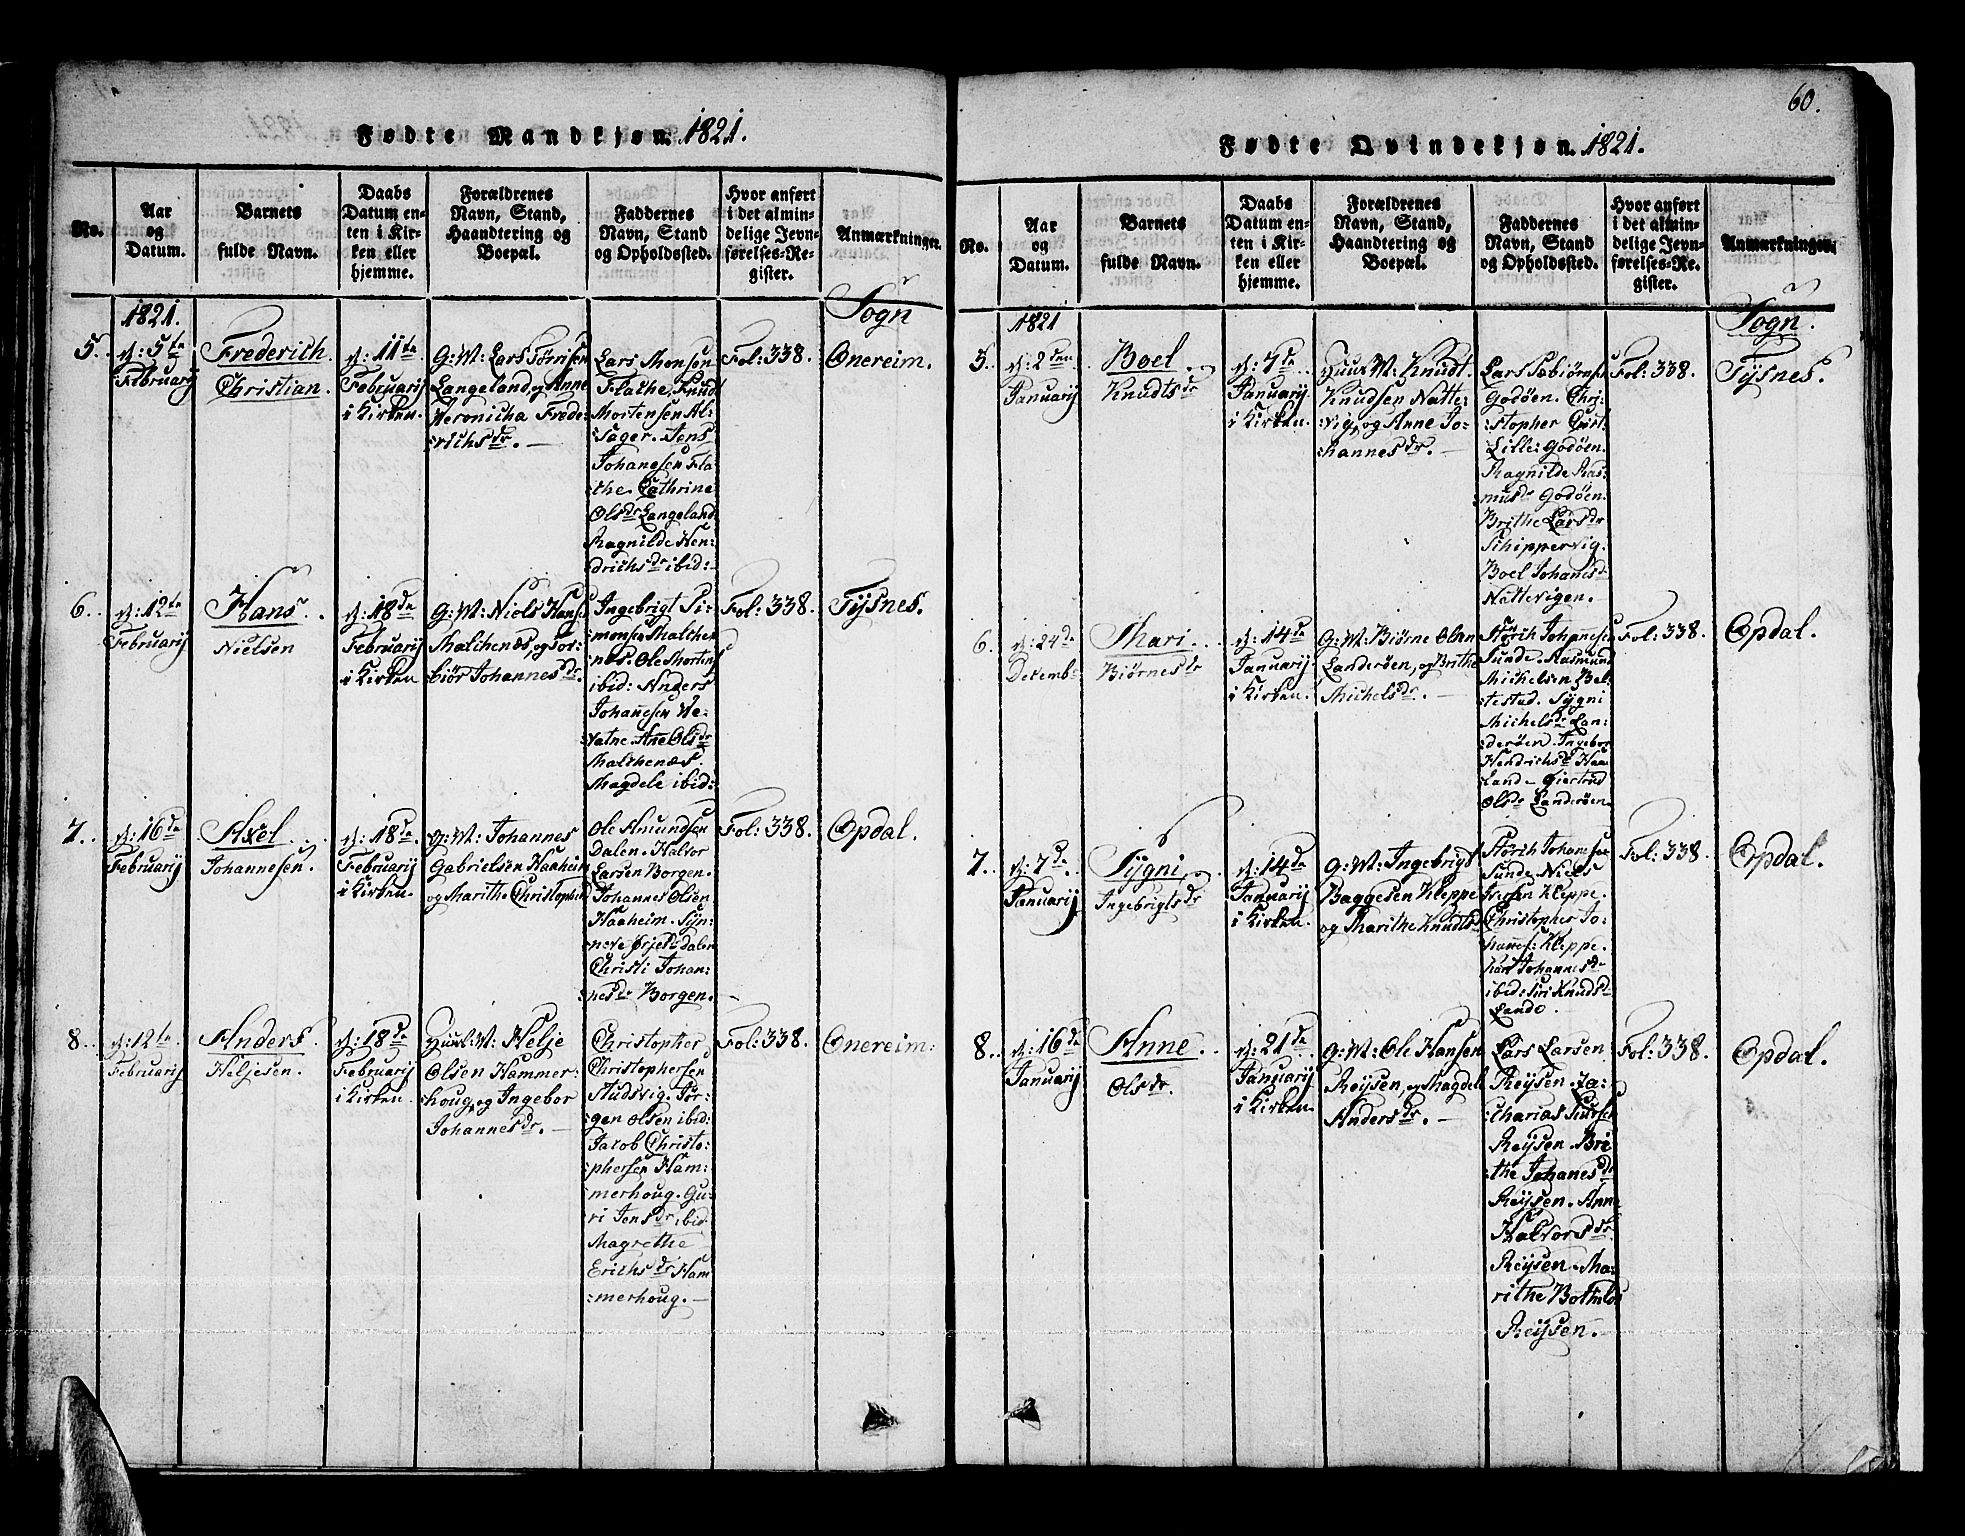 60.
Fødte Mandkjøn. 1821.
No.
Aar
og
Datum.
Barnets
fulde Navn.
Daabs
Datum en-
ten i Kir-
ken eller
hjemme.
Forældrenes
Navn, Stand,
Haandtering og
Boepæl.
Faddernes
Navn, Stand
og Opholdssted.
Hvor anført
i det almin-
delige Jevn-
førelses-Re-
gister.
Anmærkninger.
Sogn
1821.
5.
d: 5te
Februarij
Frederich
Christian.
d: 11te
Februarij
i Kirken.
G: M: Lars Tørrisen
Langeland, og Anne
Veronicha Frede-
:richsdr. —
Lars Monsen
Flathe, Knud
Mortensen Al-
:sager. Jens
Johannesen Fla-
:the. Cathrine
Olsdr Langeland
Ragnilde Hen-
:drichsdr ibid:
Fol: 338.
Onereim.
6.
d: 12te
Februarij
Hans
Nielsen
d: 18de
Februarij
i Kirken
G: M: Niels Hansen
Malchenæs, og Tor-
biør Johannesdr.
Ingebrigt Si-
monsen Malche-
næs. Ole Mortens
ibid: Anders
Johannesen We-
Vatne. Ane Olsdr
Malchenæs.
Magdele ibid:
Fol: 338.
Tysnes.
7.
d: 16de
Februarij
Axel
Johannesen
d: 18de
Februarij
i Kirken.
G: M: Johannes
Gabrielsen Haaheim
og Marithe Christophed
Ole Amundsen
Dalen. Halvor
Larsen Borgen.
Johannes Olsen
Haaheim. Syn-
neve Ørjelsdalen
Christi Johan-
:nesdr Borgen.
Fol: 338.
Opdal.
8.
d: 12te
Februarij
Anders
Heljesen.
d: 18de
Februarij
i Kirken.
Huusm: M: Helje
Olsen Hammer-
houg, og Ingebor
Johannesdr. —
Christopher
Christophersen
Studsvig. Jør-
gen Olsen ibid:
Jacob Christo-
:phersen Ham-
merhoug. Gu-
ri Jensdr ibid
Magrethe
Erichsdr Ham
:merhoug. —
Fol: 338.
Onereim.
Fødte Qvindekjøn. 1821.
No.
Aar
og
Datum.
Barnets
fulde Navn.
Daabs
Datum en-
ten i Kir-
ken eller
hjemme.
Forældrenes
Navn, Stand,
Haandtering og
Boepæl.
Faddernes
Navn, Stand
og Opholdssted.
Hvor anført
i det almin-
delige Jevn-
førelses-Re-
gister.
Anmærkninger.
Sogn.
1821
5.
d: 2den
Januarij
Boel
Knudtsdr
d: 7de
Januarij
i Kirken.
Huus M: Knudt
Knudsen Natte-
:vig, og Anne Jo-
hannesdr. —
Lars Sæbiørns
Godøen. Chri-
:stopher
Lille: Godøen.
Ragnilde Ras-
musdr Godøen.
Brithe Larsdr
Schippervig.
Boel Johanisdr
Nattevigen. —
Fol: 338.
Tysnes.
6.
d: 24de
Decembr
Mari
Biørnesdr
d: 14de
Januarij
i Kirken.
G: M: Biørne Olsen
Landerøen, og Brithe
Michelsdr. —
Størch Johannesen
Sunde. Rasmund
Michelsen Bel-
testad. Sygni
Michelsdr Lan-
:derøen. Ingebor
Hendrichsdr Haa-
land – Giertrud
Olsdr Landerøen.
Fol: 338.
Opdal.
7.
d: 7de
Januarij
Sygni
Ingebrigtsdr
d: 14de
Januarij
i Kirken.
G: M: Ingebrigt
Baggesen Kleppe
og Marithe Knudtsdr
Størch Johannesen
Sunde Niels
Kleppe.
Christopher Jo-
hannes: Kleppe.
Kari Johannesdr
ibid: Siri Knudsdr
Lande.
Fol: 338.
Opdal.
8.
d: 16de
Januarij
Anne
Olsdr
d: 21de
Januarij
i Kirken.
G: M: Ole Hansen
Reysen, og Magdele
Andersdr. —
Lars Larsen
Reysen. Za-
:charias
Reysen. Bri-
the Johanesdr
Reysen. Anne
Halvorsdr
Reysen. Ma-
rithe Bothilds
Reysen. —
Fol: 338.
Opdal.